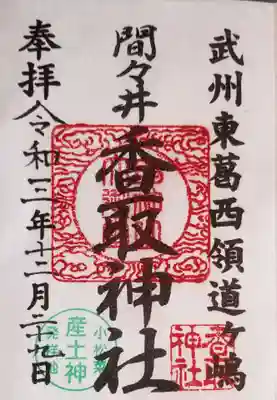 武州東葛西領道ヶ嶋
間々井
香取神社
奉拝 令和三年十二月二十九日
香取
神社
小松菜
産土神
発祥地